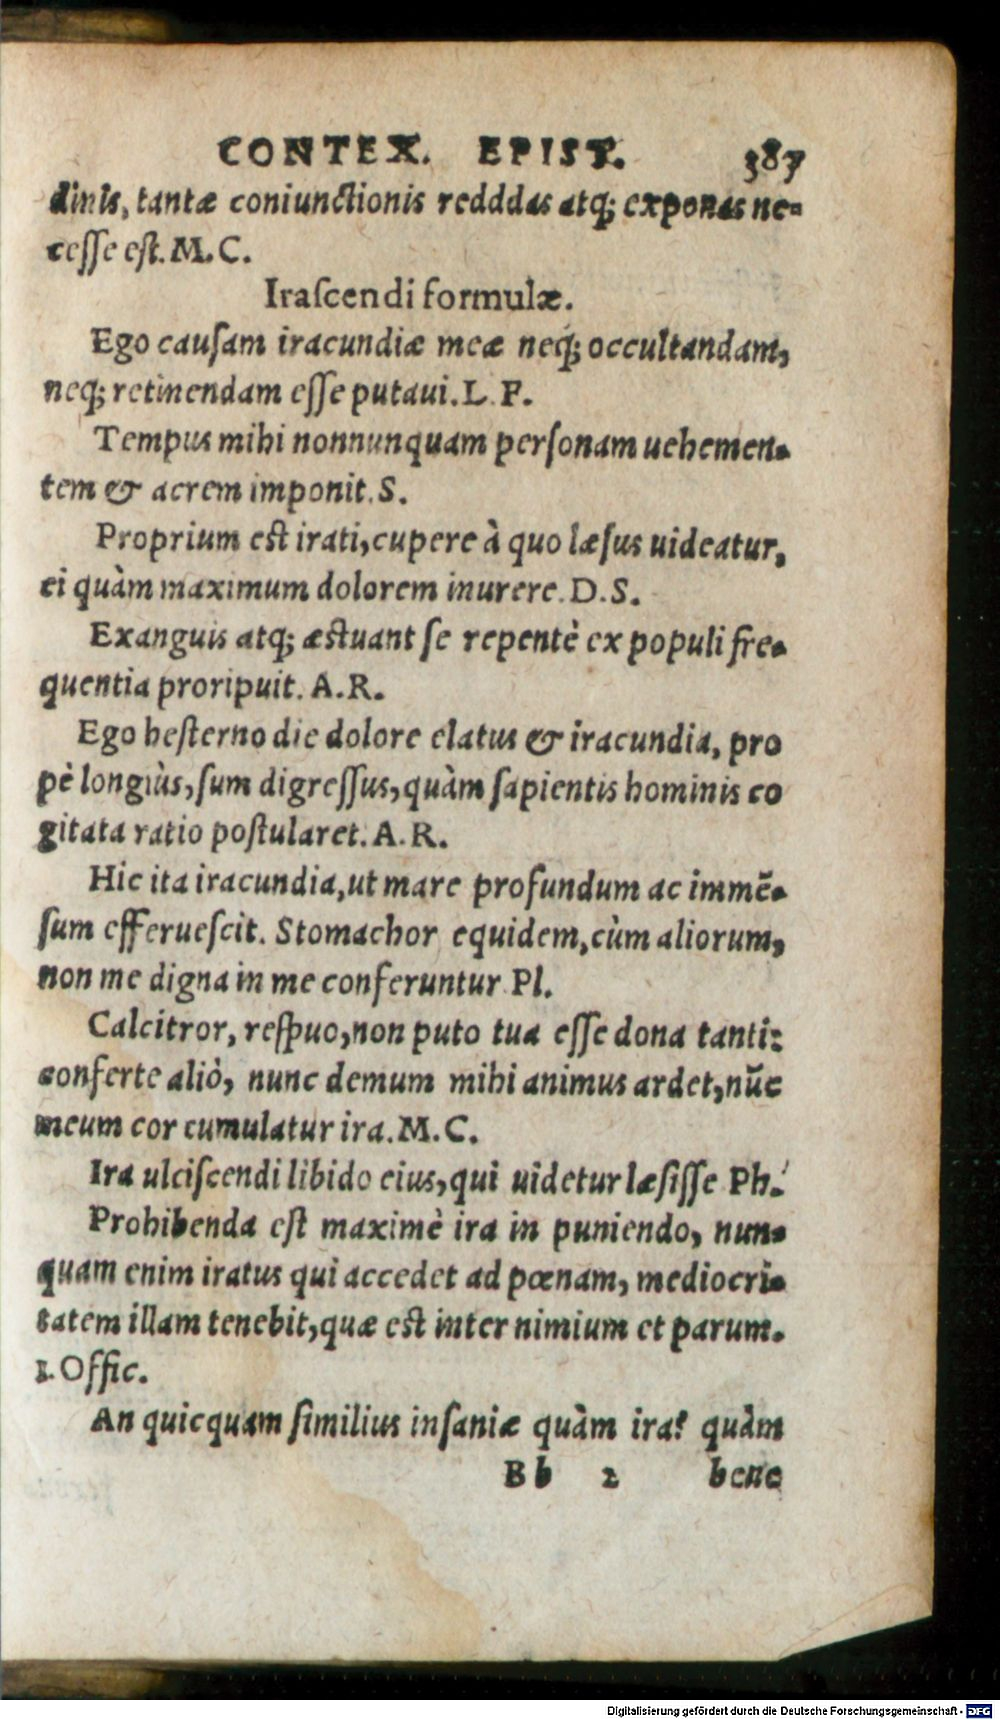 CONTEX. EPIST. 387
dinis, tantæ coniunctionis redddas atq; exponas ne-
cesse est. M. C.
Irascendi formulæ.
Ego causam iracundiæ meæ neq; occultandam,
neq; retinendam esse putaui. L. F.
Tempus mihi nonnunquam personam uehemen-
tem & acrem imponit. S.
Proprium est irati, cupere à quo læsus uideatur,
ei quàm maximum dolorem inurere. D. S.
Exanguis atq; æstuant se repentè ex populi fre-
quentia proripuit. A. R.
Ego hesterno die dolore elatus & iracundia, pro
pè longiùs, sum digressus, quàm sapientis hominis co
gitata ratio postularet. A. R.
Hic ita iracundia, ut mare profundum ac immẽ-
sum efferuescit. Stomachor equidem, cùm aliorum,
non me digna in me conferuntur Pl.
Calcitror, respuo, non puto tua esse dona tanti:
conferte aliò, nunc demum mihi animus ardet, nũc
meum cor cumulatur ira. M. C.
Ira ulciscendi libido eius, qui uidetur læsisse Ph.
Prohibenda est maximè ira in puniendo, nun-
quam enim iratus qui accedet ad pœnam, mediocri-
tatem illam tenebit, quæ est inter nimium et parum.
1. Offic.
An quicquam similius insaniæ quàm ira? quàm
Bb 2 bene
Digitalisierung gefördert durch die Deutsche Forschungsgemeinschaft - DFG